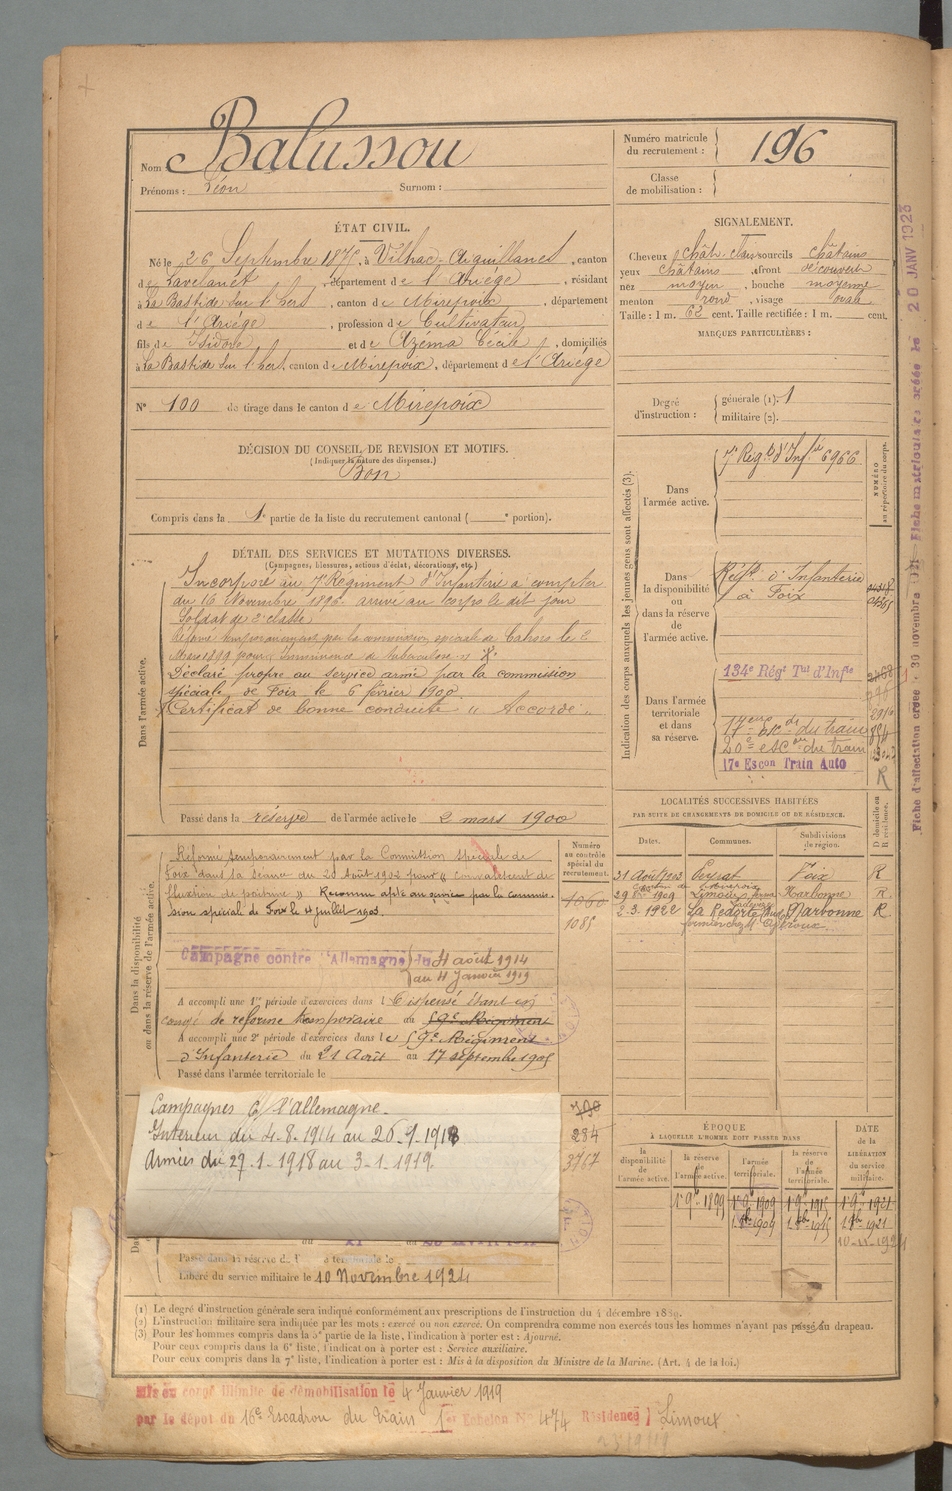 Nom Balussou
Prénoms : Léon Surnom :
Numéro matricule du recrutement : 196
Classe de mobilisation :
ÉTAT CIVIL.
Né le 26 Septembre 1875, à Vilhac-Aiguillanes, canton
de Lavelanet, département de l'Ariège, résidant
à La Bastide sur l'Hers, canton de Mirepoix, département
de l'Ariège, profession de Cultivateur
fils de Isidore et de Azéma Cécile, domiciliés
à La Bastide sur l'hers, canton de Mirepoix, département de l'Ariège
N° 100 de tirage dans le canton de Mirepoix
SIGNALEMENT.
Cheveux chât. clairs sourcils châtains
yeux châtains, front découvert
nez moyen, bouche moyenne
menton rond, visage ovale
Taille : 1 m. 62 cent. Taille rectifiée : 1 m. cent.
MARQUES PARTICULIÈRES :
Degré d'instruction : générale (1). 1
militaire (2).
DÉCISION DU CONSEIL DE REVISION ET MOTIFS.
(Indiquer la nature des dispenses.)
Bon
Compris dans la 1e partie de la liste du recrutement cantonal ( e portion).
DÉTAIL DES SERVICES ET MUTATIONS DIVERSES.
(Campagnes, blessures, actions d'éclat, décorations, etc.)
Dans l'armée active.
Incorporé au 7e Régiment d'Infanterie à compter
du 16 Novembre 1896 arrivé au corps le dit jour
Soldat de 2e classe
Réformé temporairement par la commission spéciale de Cahors le 2
Mars 1899 pour Imminence de tuberculose
Déclaré propre au service armé par la commission
spéciale de Foix le 6 février 1900.
Certificat de bonne conduite "Accordé"
Passé dans la réserve de l'armée active le 2 mars 1900
Indication des corps auxquels les jeunes gens sont affectés (3).
NUMÉRO au répertoire du corps.
Dans l'armée active.
7e Régt d'Infie 6966
Dans la disponibilité ou dans la réserve de l'armée active.
Régt d'Infanterie
à Foix
Dans l'armée territoriale et dans sa réserve.
134e Régt Tal d'Infie
17eme Esc on du train
20e esc on du train
17e Escon Train Auto
R
LOCALITÉS SUCCESSIVES HABITÉES
PAR SUITE DE CHANGEMENTS DE DOMICILE OU DE RÉSIDENCE.
D domicile ou R résidence.
Dates. Communes. Subdivisions de région.
21 Août 1903 Foix R
1909 Limoux Narbonne R
2-3-1922 La Redorte Narbonne R
Dans la disponibilité ou dans la réserve de l'armée active.
Numéro au contrôle spécial du recrutement.
1060
1085
Réformé temporairement par la Commission spéciale de
Foix dans la séance du 20 Août 1902 pour "convalescent de
fluxion de poitrine" Reconnu apte au service par la commis-
sion spécial de Foix le 4 juillet 1903.
Campagne contre l'Allemagne du 4 août 1914
au 4 Janvier 1919
A accompli une 1re période d'exercices dans l Dispensé étant en
congé de réforme temporaire au 59e Régiment
A accompli une 2e période d'exercices dans le 59e Régiment
d'Infanterie du 21 Août au 17 septembre 1905
Passé dans l'armée territoriale le
Campagnes c/ l'Allemagne.
Intérieur du 4.8.1914 au 26.9.1918
Armées du 27-1-1918 au 3-1-1919.
790
284
3767
ÉPOQUE
À LAQUELLE L'HOMME DOIT PASSER DANS
la disponibilité de l'armée active.
la réserve de l'armée active.
l'armée territoriale.
la réserve de l'armée territoriale.
DATE de la LIBÉRATION du service militaire.
1er 9bre 1899 1er 9 1909 1er 9bre 1915 1er 9bre 1921
Passé dans la réserve de l'armée territoriale le
Libéré du service militaire le 10 Novembre 1924
(1) Le degré d'instruction générale sera indiqué conformément aux prescriptions de l'instruction du 4 décembre 1889.
(2) L'instruction militaire sera indiquée par les mots : exercé ou non exercé. On comprendra comme non exercés tous les hommes n'ayant pas passé au drapeau.
(3) Pour les hommes compris dans la 5e partie de la liste, l'indication à porter est : Ajourné.
Pour ceux compris dans la 6e liste, l'indication à porter est : Service auxiliaire.
Pour ceux compris dans la 7e liste, l'indication à porter est : Mis à la disposition du Ministre de la Marine. (Art. 4 de la loi.)
Mis en congé illimité de démobilisation le 4 Janvier 1919
par le dépôt du 16e Escadron du Train Echelon N° 474 Résidence Limoux
Fiche d'affectation créée 30 novembre 1921 Fiche matricule créée le 20 JANV 1923